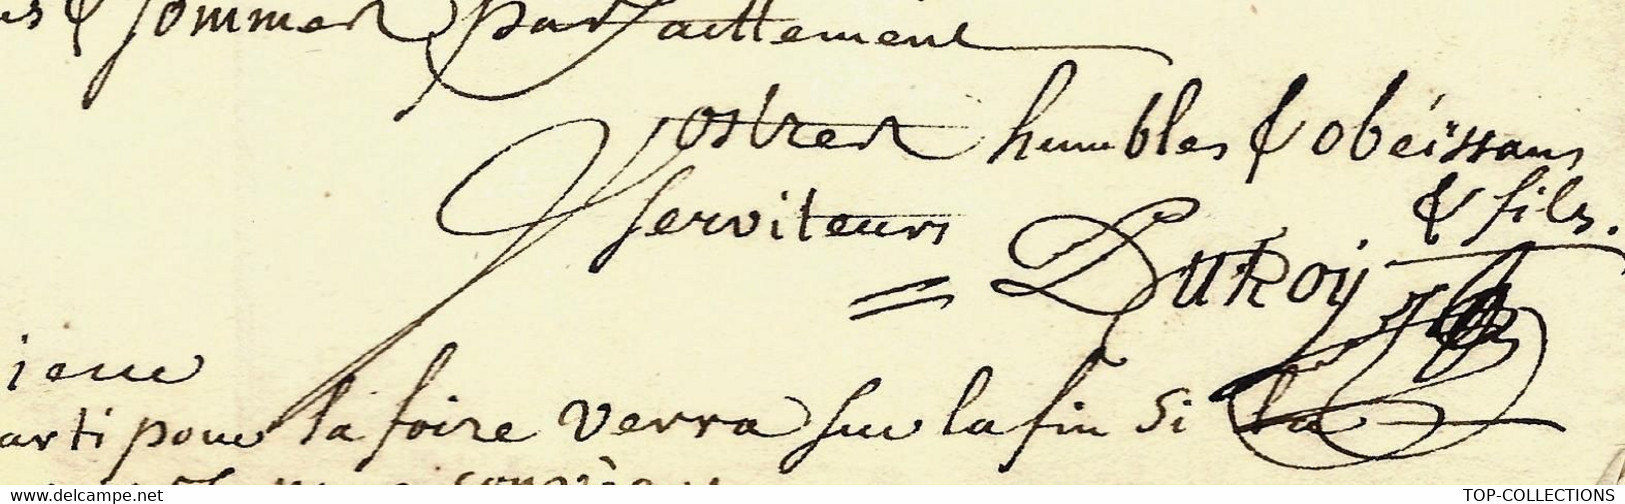 & sommes parfaittement
vostres humbles & obéïssans
serviteurs
& fils.
= DuRoy
ieur
arti pour la foire verra sur la fin si la
www.delcampe.net
TOP-COLLECTIONS